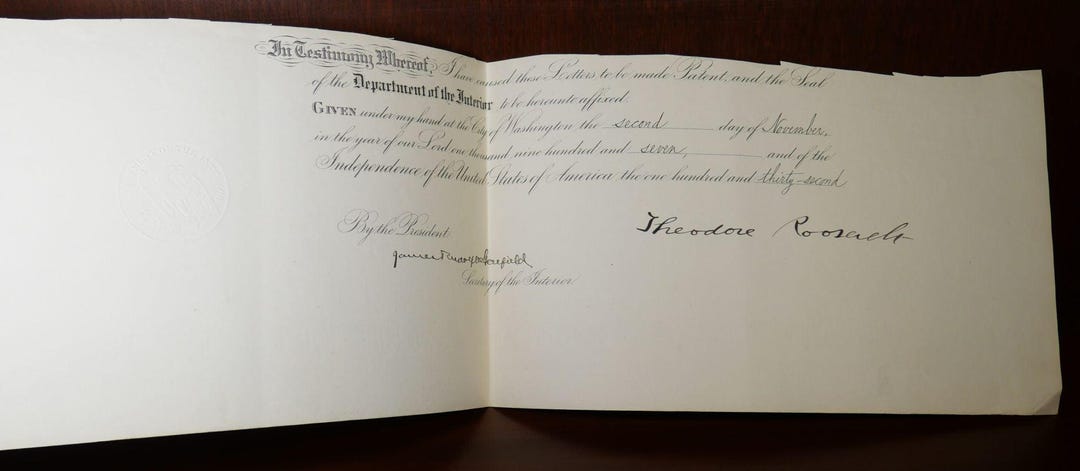 In Testimony Whereof, I have caused these Letters to be made Patent, and the Seal
of the Department of the Interior to be hereunto affixed.
GIVEN under my hand at the City of Washington the second day of November,
in the year of our Lord one thousand nine hundred and seven, and of the
Independence of the United States of America the one hundred and thirty-second
Theodore Roosevelt
By the President:
James Rudolph Garfield
Secretary of the Interior